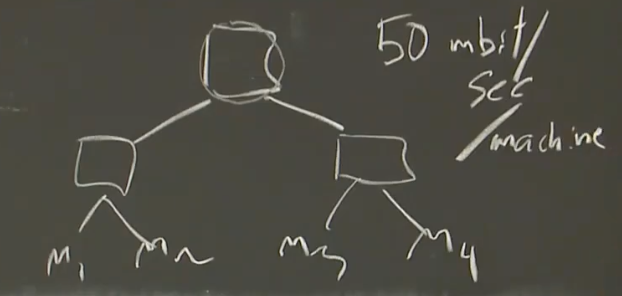 50 mbit/
sec
/machine
M1 M2 M3 M4